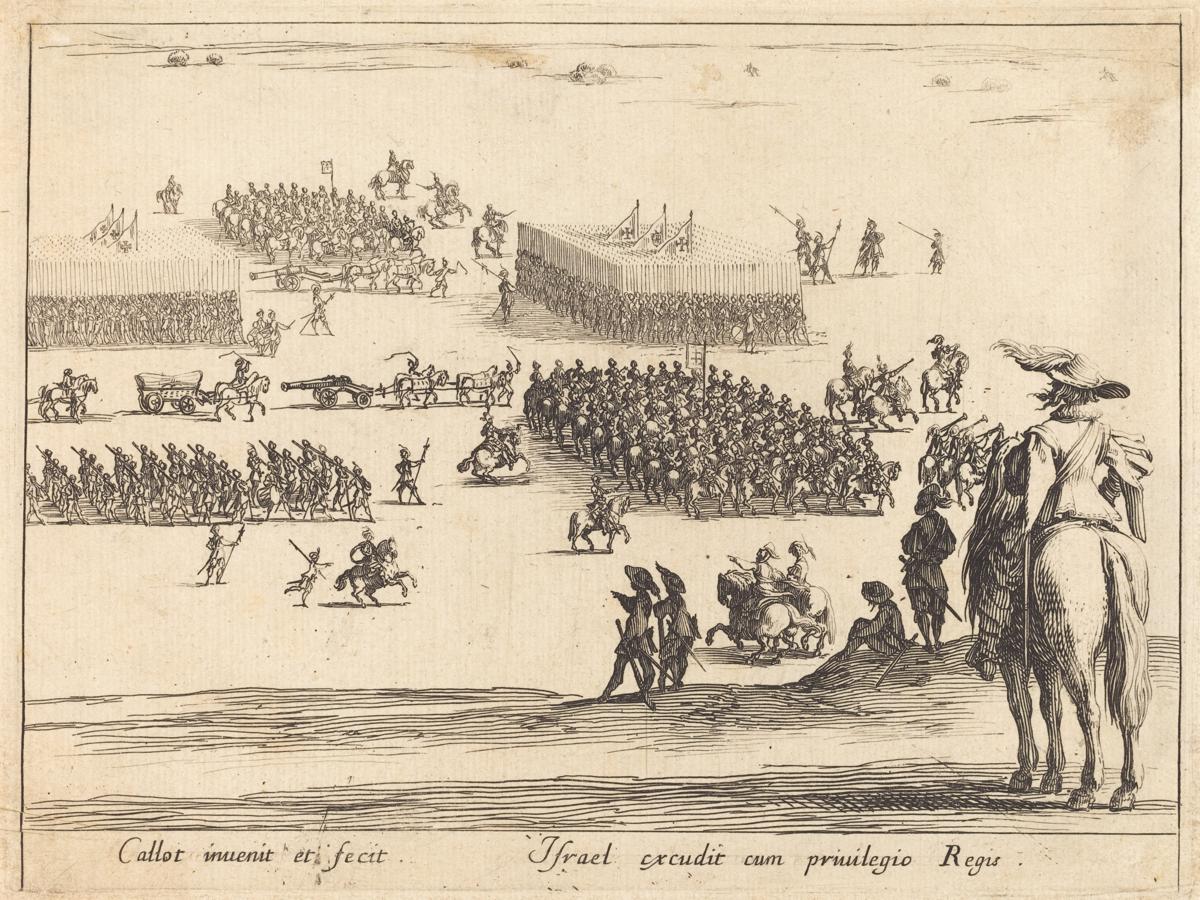 Callot inuenit et fecit .
Israel excudit cum priuilegio Regis .